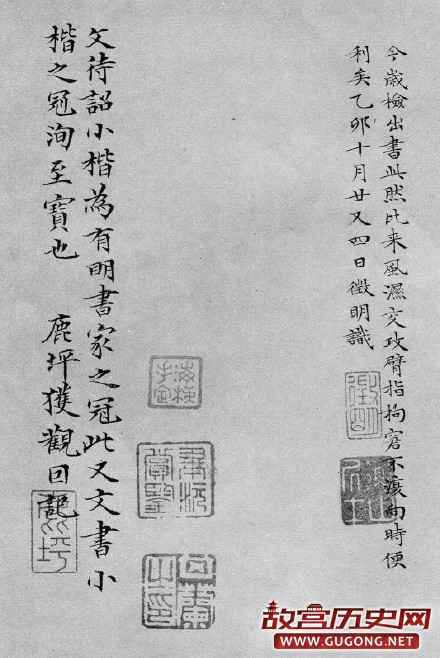 今歲檢出書此然比来風濕交攻臂指拘窘不復向時便
利矣乙卯十月廿又四日徵明識
徵明
文待詔小楷為有明書家之冠此又文書小
楷之冠洵至寶也 鹿坪獲觀回記
鹿坪
故宫历史网
www.GUGONG.net